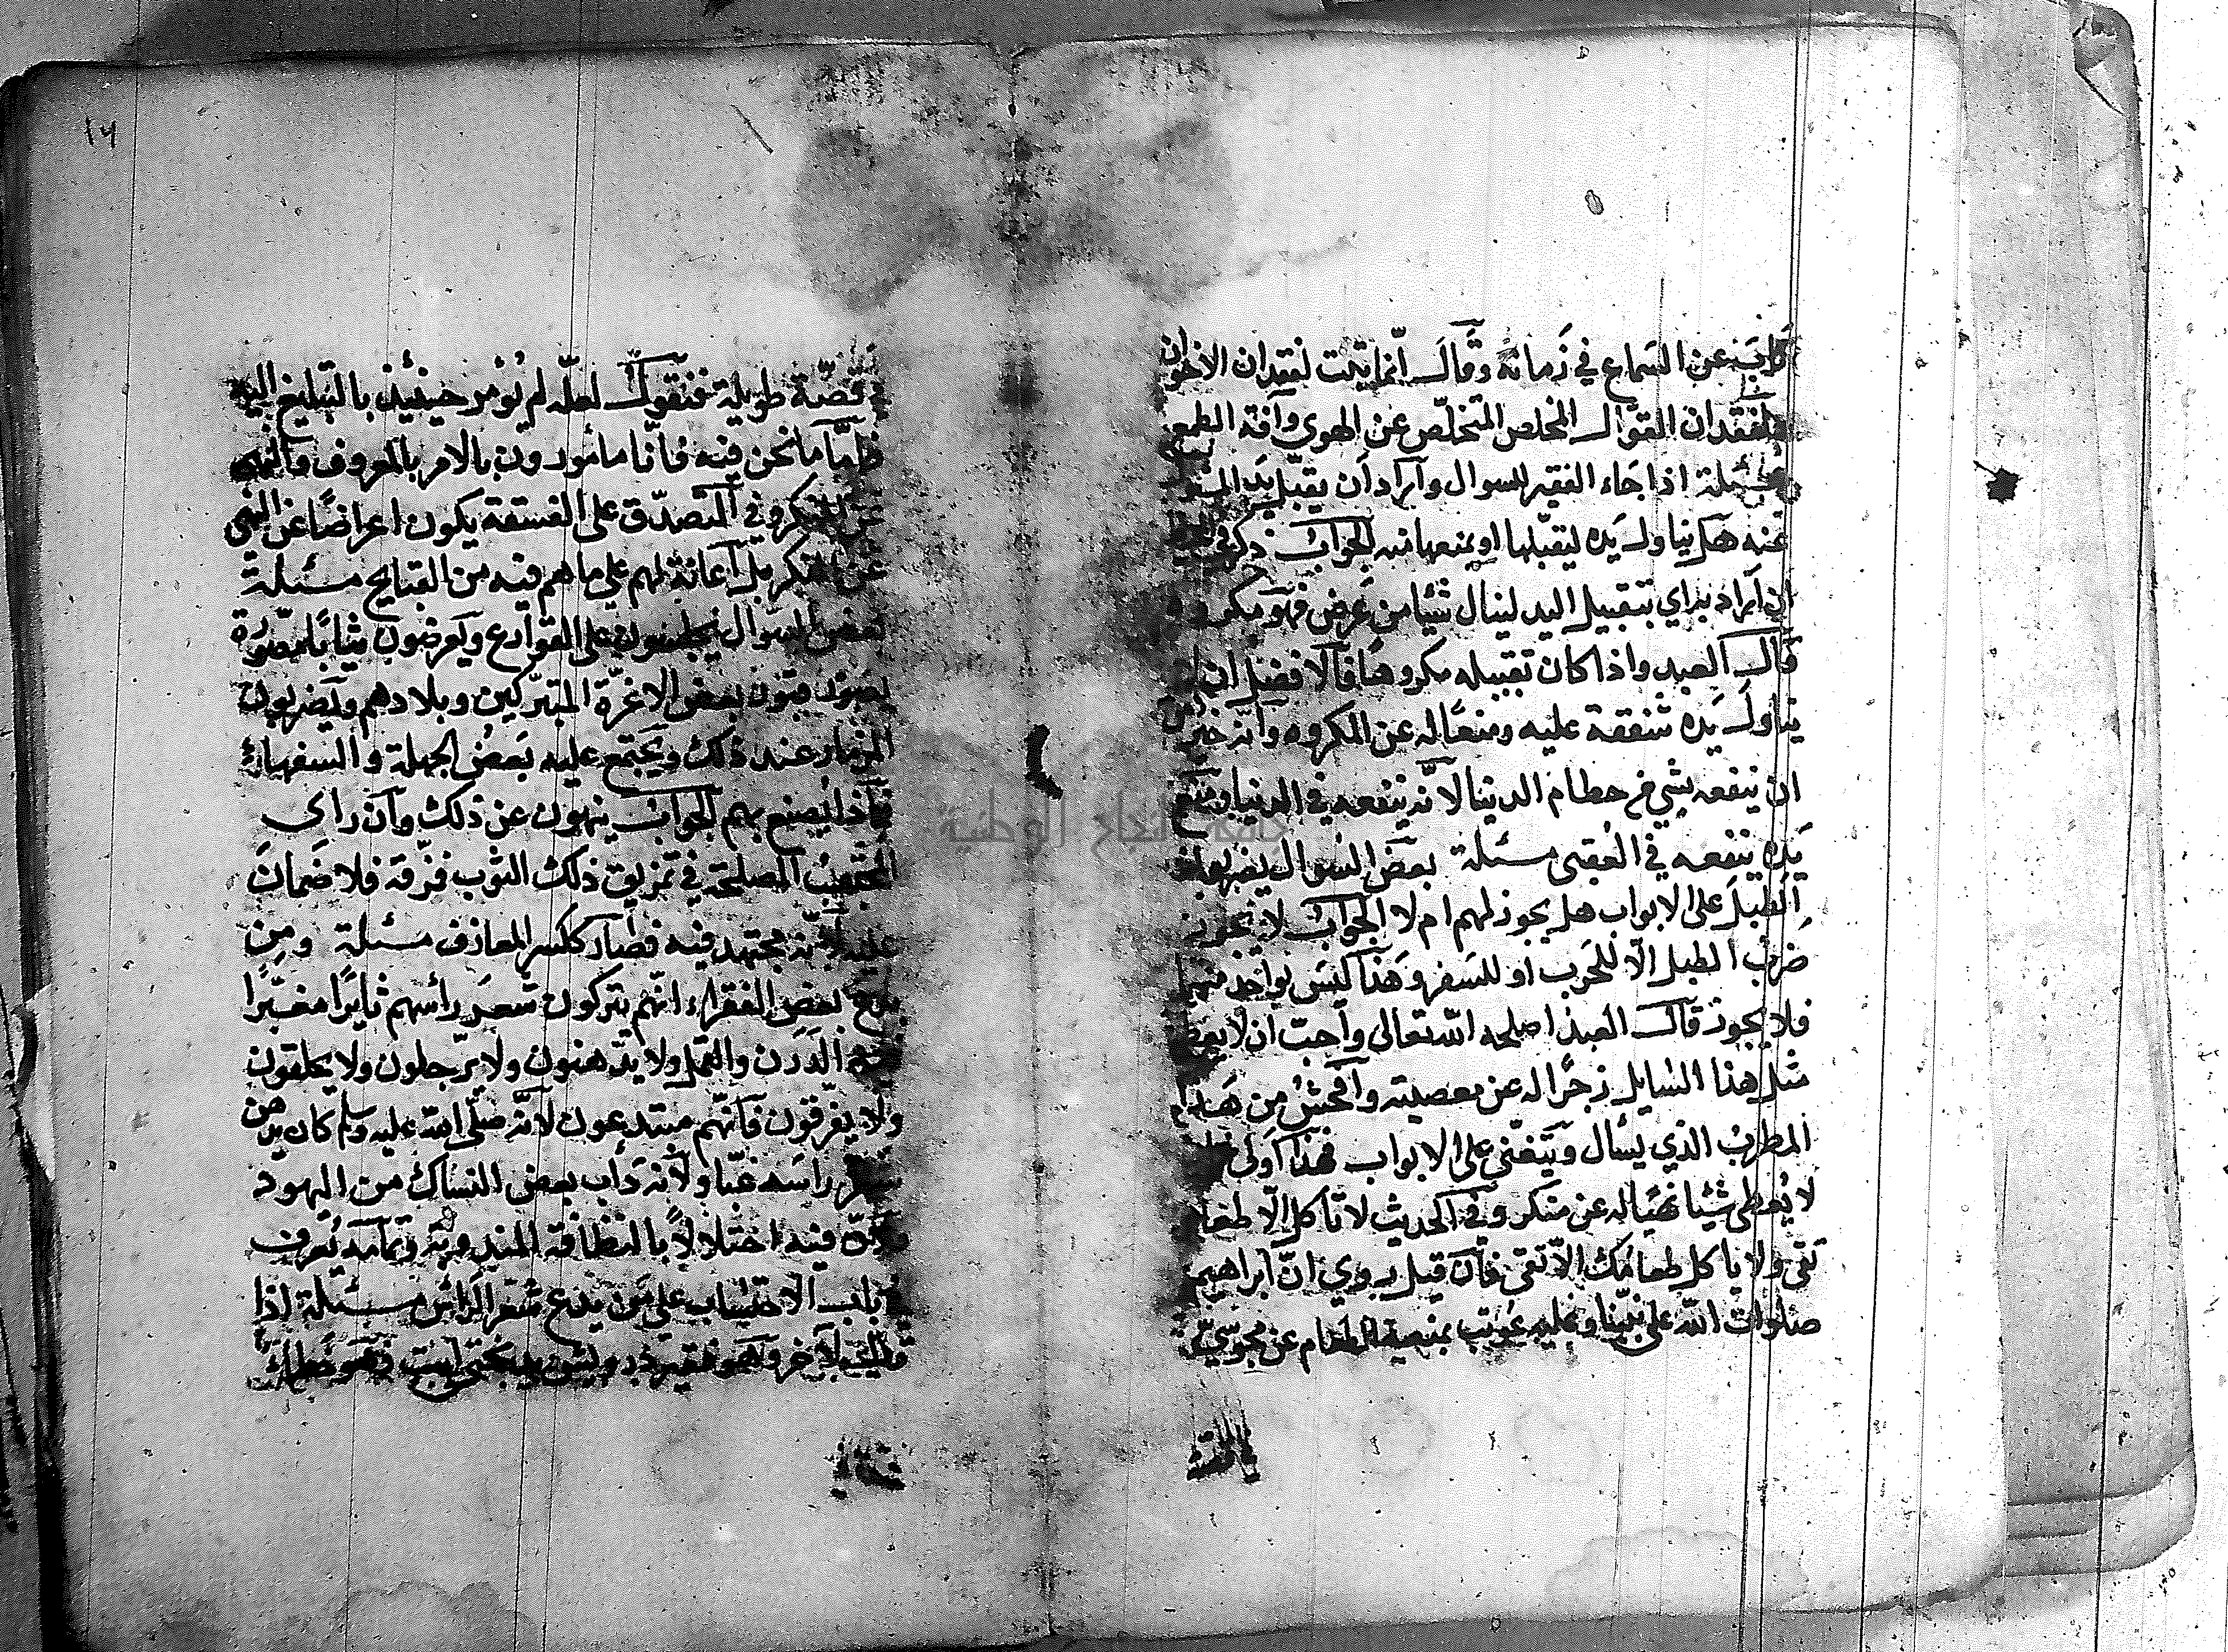 تاب عن السماع في زمانه وقال انما تبت لفقدان الاخوان
ولفقدان القوال المخلص المتخلص عن الهوي وآفة الطمع
مسئلة اذا جاء الفقير للسوال وآراد ان يقبل يد
عنه هل يناول يده ليقبلها او يمنعها منه الجواب ذكر في
ان آراد بذاي بتقبيل اليد لينال شيئا من عرض فهو مكروه
قال العبد واذا كان تقبيله مكروها فالافضل ان لا
يناول يده شفقة عليه ومنعا له عن المكروه وانه خير من
ان ينفعه بشي من حطام الدنيا لانه ينفعه في الدنيا ومنع
يده ينفعه في العقبى مسئلة بعض السوال يضربون
الطبل على الابواب هل يجوز لهم ام لا الجواب لا يجوز
ضرب الطبل الا للحرب او للسفر وهذا ليس بواحد منهما
فلا يجوز قال العبد اصلحه الله تعالى واحب ان لا يعطى
مثل هذا السايل زجرا له عن معصيته وافحش من هذا
المطرب الذي يسأل ويتغنى على الابواب فهذا اولى
لا يعطى شيئا نهيا له عن منكر وفي الحديث لا تأكل الا طعام
تقي ولا يأكل طعامك الا تقي فان قيل روي ان ابراهيم
صلوات الله على نبينا وعليه عوتب بمنعه الطعام عن مجوسي
في قصة طويلة فنقول لعله لم يؤمر حينئذ بالتبليغ اليه
فاما ما نحن فيه فانا مامورون بالامر بالمعروف والنهي
عن المنكر وفي التصدق على الفسقة يكون اعراضا عن النهي
عن المنكر بل آعانة لهم على ما هم فيه من القبايح مسئلة
بعض السوال يجلسون على القوارع ويعرضون ثيابا مصورة
بصور قبور بعض الاعزة المتبركين وبلادهم ويضربون
المزمار عند ذلك ويجتمع عليه بعض الجهلة والسفهاء
ماذا يصنع بهم الجواب ينهون عن ذلك وان راي
المحتسب المصلحة في تمزيق ذلك الثوب فمزقه فلا ضمان
عليه لانه مجتهد فيه فصار ككسر المعازف مسئلة ومن
بدع بعض الفقراء انهم يتركون شعر رأسهم ثايرا مغبرا
الدرن والقمل ولا يدهنون ولا يرجلون ولا يحلقون
ولا يفرقون فانهم مبتدعون لانه صلى الله عليه وسلم كان يدهن
شعر راسه غبا ولانه دأب بعض النساك من اليهود
فيه اختلالا بالنظافة المندوبة وتمامه يعرف
في باب الاحتساب على من يدع شعر الراس مسئلة اذا
قال لآخر وهو فقير درويش فهو خطاء